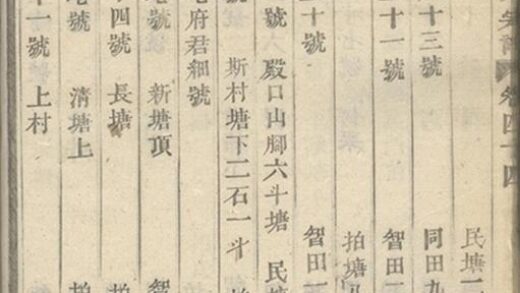 卷四十四
民塘一
十三號 同田九
十一號 智田二
拍塘八
十號 智田一
號 殿口山腳六斗塘 民塘
斯村塘下二石一斗 拍
府君細號
號 新塘頂 智
四號 長塘 拍
號 清塘上 拍
十一號 上村